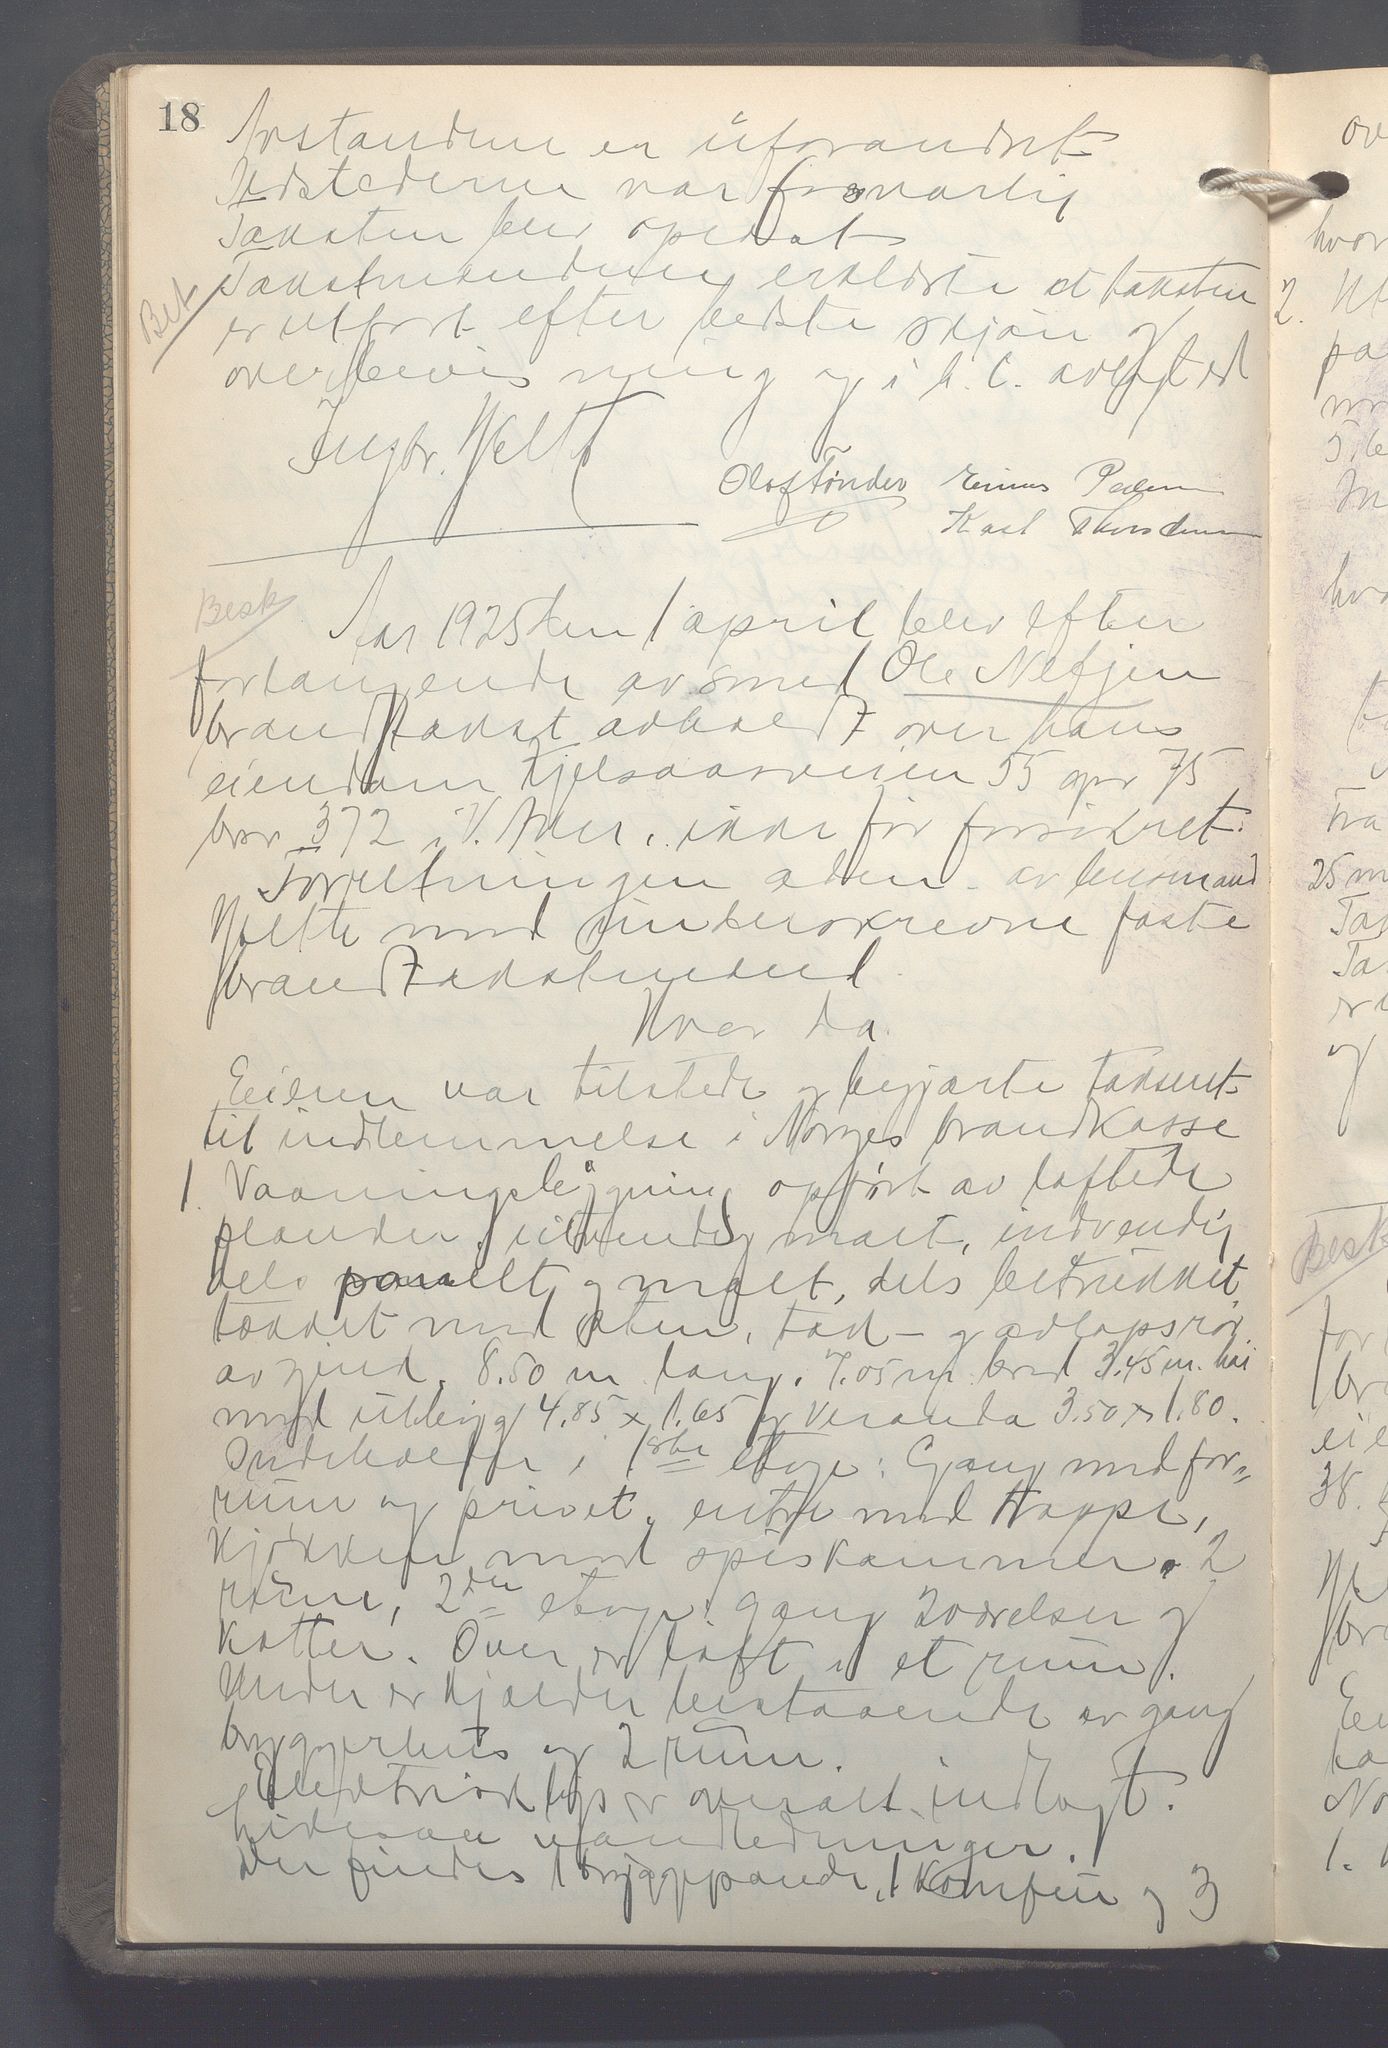 18
Avstandene er uforandret
Ildstederne var forsvarlig
Taksten blev oplæst
Bet
Takstmændene erklærte at taksten
er utført efter bedste skjøn og
overbevisning og i h. t. avlagt ed
Ingbr. Hjelte
Olaf Tønder Einus Peder
Karl Thorsdensen
Besk
Aar 1925 den 1 april blev efter
forlangende av smed Ole Nefjen
brandtakst avholdt over hans
eiendom Kjelsaasveien 55 gnr 75
bnr 372 i V. Aker, ikke før forsikret.
Forretningen adm. av lensmand
Hjelte med underskrevne faste
brandtakstmænd.
Hvor da
Eieren var tilstede og begjærte taksert
til indlemmelse i Norges brandkasse
1. Vaaningsbygning opført av laftede
planker, utvendig malt, indvendig
dels panelt og malt, dels betrukket
tækket med sten, tak- og avløpsrør
av zink. 8.50 m lang, 7.05 m bred 3.45 m. høi
med utbygg 4.85 x 1.65 og Veranda 3.50 x 1.80.
Indeholder i 1ste etage: Gang med for-
rum og privet, entre med trappe,
kjøkken med spiskammer. 2
rum, 2den etage: gang 2 værelser og
kotter. Over er loft i et rum.
Under er kjælder bestaaende av gang
bryggerhus og 2 rum.
Elektrisk lys er overalt indlagt.
Likesaa vandledninger.
Der findes 1 bryggepande, 1 komfur og 3